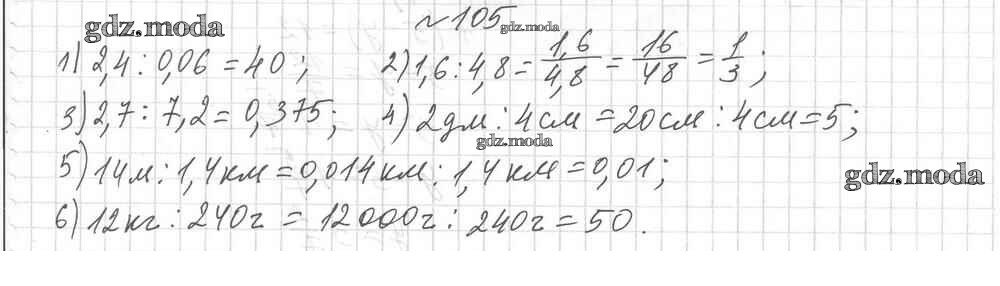 №105
gdz.moda
gdz.moda
1) 2,4 : 0,06 = 40; 2) 1,6 : 4,8 = 1,6/4,8 = 16/48 = 1/3;
3) 2,7 : 7,2 = 0,375; 4) 2дм : 4см = 20см : 4см = 5;
gdz.moda
5) 14м : 1,4км = 0,014км : 1,4км = 0,01;
gdz.moda
6) 12кг : 240г = 12000г : 240г = 50.